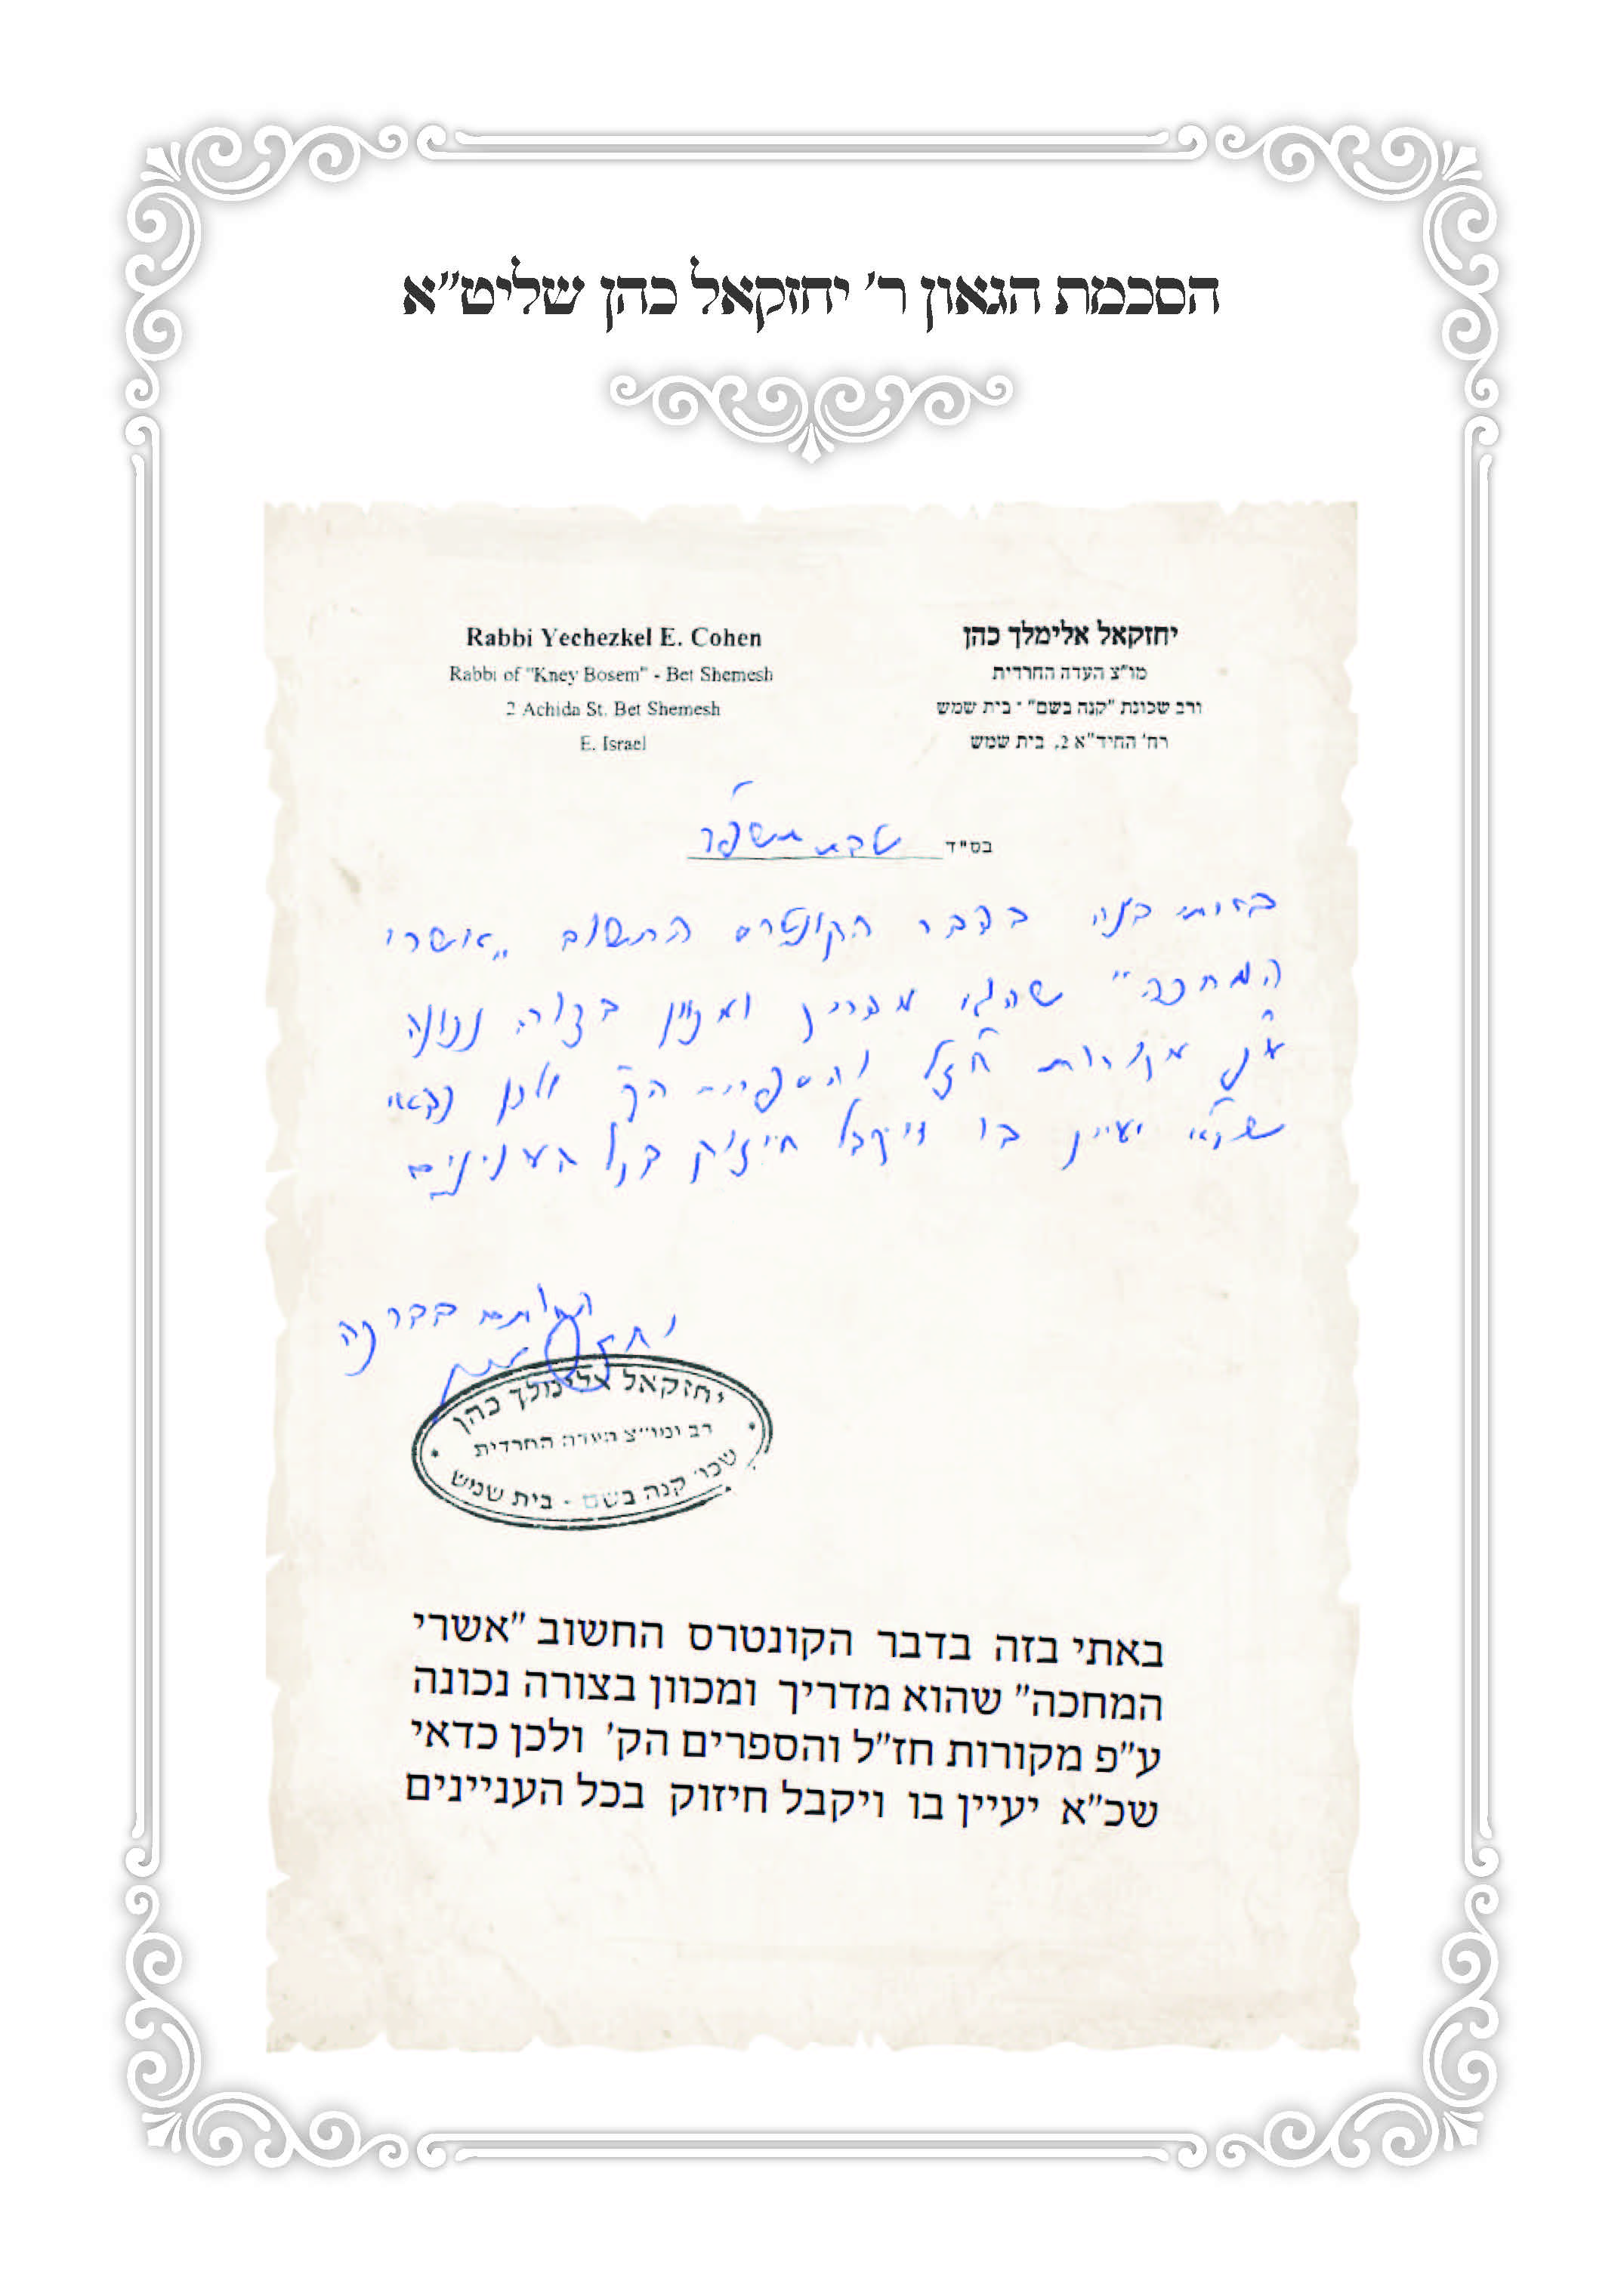 הסכמת הגאון ר' יחזקאל כהן שליט"א
יחזקאל אלימלך כהן
מו"צ העדה החרדית
ורב שכונת "קנה בשם" - בית שמש
רח' החיד"א 2, בית שמש
Rabbi Yechezkel E. Cohen
Rabbi of "Kney Bosem" - Bet Shemesh
2 Achida St. Bet Shemesh
E. Israel
בס"ד טבת תשפ"ד
באתי בזה בדבר הקונטרס החשוב "אשרי
המחכה" שהוא מדריך ומכוון בצורה נכונה
ע"פ מקורות חז"ל והספרים הק' ולכן כדאי
שכ"א יעיין בו ויקבל חיזוק בכל הענינים
החותם בברכה
יחזקאל אלימלך כהן
רב ומו"צ העדה החרדית
שכו' קנה בשם - בית שמש
באתי בזה בדבר הקונטרס החשוב "אשרי
המחכה" שהוא מדריך ומכוון בצורה נכונה
ע"פ מקורות חז"ל והספרים הק' ולכן כדאי
שכ"א יעיין בו ויקבל חיזוק בכל העניינים